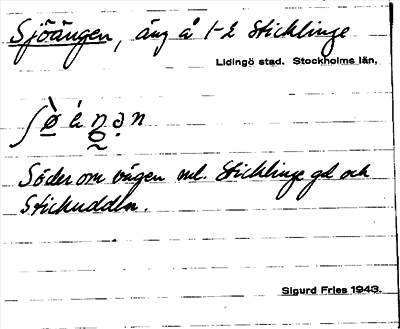 Sjöängen, äng å 1-2 Sticklinge
Lidingö stad. Stockholms län.
Söder om vägen ml. Sticklinge gd och
Stickudden.
Sigurd Fries 1943.